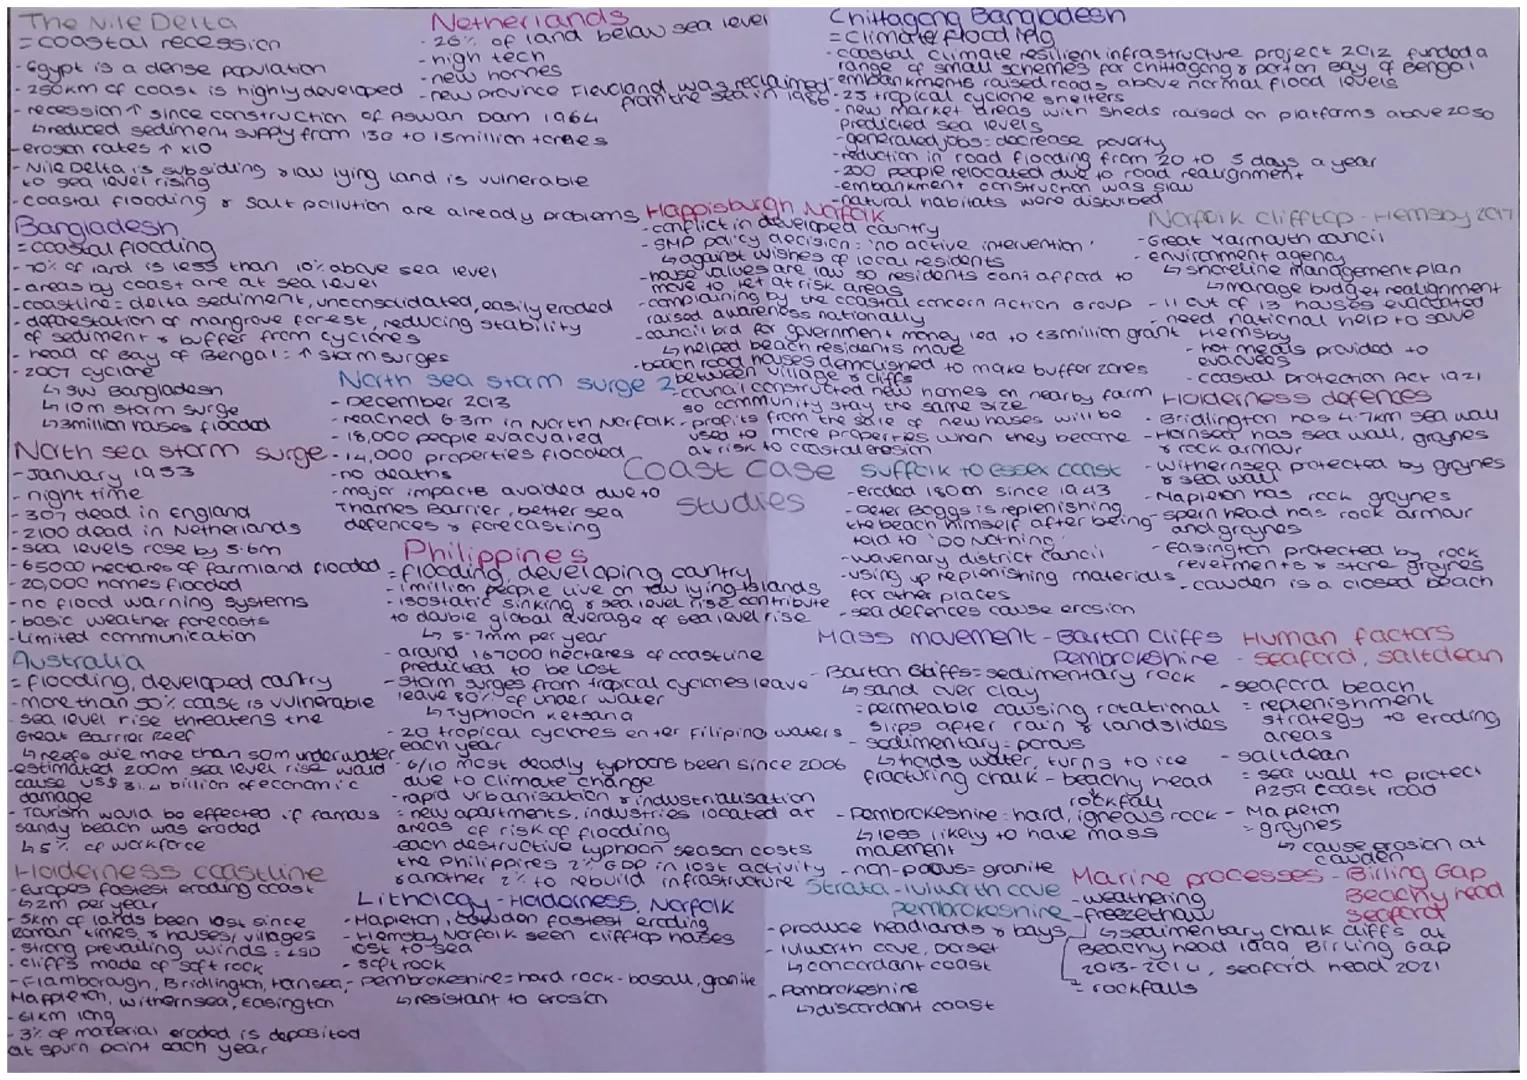 The Nile Delta
= coastal recession
- Egypt is a dense population
- 250km of coast is highly developed
- recession ↑ since construction of Aswan Dam 1964
↳ reduced sediment supply from 130 to 15 million tonnes
- erosion rates ↑ x10
- Nile Delta is subsiding & low lying land is vulnerable
to sea level rising
- coastal flooding & salt pollution are already problems
Netherlands
- 26% of land below sea level
- high tech
- new homes
- new province Flevoland was reclaimed
from the sea in 1986
Chittagong Bangladesh
= climate flooding
- coastal climate resilient infrastructure project 2012 funded a
range of small schemes for chittagong & port on Bay of Bengal
- embankments raised roads above normal flood levels
- 25 tropical cyclone shelters
- new market areas with sheds raised on platforms above 2050
predicted sea levels
- generated jobs = decrease poverty
- reduction in road flooding from 20 to 5 days a year
- 200 people relocated due to road realignment
- embankment construction was slow
- natural habitats were disturbed
Bangladesh
= coastal flooding
- 70% of land is less than 10% above sea level
- areas by coast are at sea level
- coastline = delta sediment, unconsolidated, easily eroded
- deforestation of mangrove forest, reducing stability
of sediment & buffer from cyclones
- head of Bay of Bengal = ↑ storm surges
- 2007 cyclone
↳ SW Bangladesh
↳ 10m storm surge
↳ 3million houses flooded
Happisburgh Norfolk
- conflict in developed country
- SMP policy decision = 'no active intervention'
↳ against wishes of local residents
- house values are low so residents cant afford to
move to let at risk areas
- complaining by the coastal concern Action Group
raised awareness nationally
- council bid for government money led to £3million grant
↳ helped beach residents move
- beach road houses demolished to make buffer zones
between village & cliffs
- council constructed new homes on nearby farm
so community stay the same size
- profits from the sale of new houses will be
used to more properties when they become
at risk to coastal erosion
Norfolk Clifftop - Hemsby 2017
- Great Yarmouth council
- environment agency
↳ shoreline management plan
↳ manage budget realignment
- 11 out of 13 houses evacuated
- need national help to save
Hemsby
- hot meals provided to
evacuees
- coastal protection Act 1921
North sea storm surge 2
- December 2013
- reached 6.3m in North Norfolk
- 18,000 people evacuated
- 14,000 properties flooded
- no deaths
- major impacts avoided due to
Thames Barrier, better sea
defences & forecasting
North sea storm surge
- January 1953
- night time
- 307 dead in England
- 2100 dead in Netherlands
- sea levels rose by 5.6m
- 65000 hectares of farmland flooded
- 20,000 homes flooded
- no flood warning systems
- basic weather forecasts
- limited communication
Coast case
studies
Suffolk to Essex coast
- eroded 180m since 1943
- Peter Boggs is replenishing
the beach himself after being
told to 'DO NOTHING'
- wavenary district cancil
- using up replenishing materials
for other places
- sea defences cause erosion
Holderness defences
- Bridlington has 4.7km sea wall
- Hornsea has sea wall, groynes
& rock armour
- Withernsea protected by groynes
& sea wall
- Mapleton has rock groynes
- spern head has rock armour
and groynes
- Easington protected by rock
revetments & stone groynes
- cowden is a closed beach
Philippines
= flooding, developing cantry
- 1million people live on low lying islands
- isostatic sinking & sea level rise contribute
to double global average of sea level rise
↳ 5-7mm per year
- around 167000 hectares of coastline
predicted to be lost
- storm surges from tropical cyclones leave
leave 80% of under water
↳ Typhoon Ketsana
- 20 tropical cyclones enter Filipino waters
each year
- 6/10 most deadly typhoons been since 2006
due to climate change
- rapid urbanisation & industrialisation
= new apartments, industries located at
areas of risk of flooding
- each destructive typhoon season costs
the Philippines 2% GDP in lost activity
& another 2% to rebuild infrastructure
Australia
= flooding, developed cantry
- more than 50% coast is vulnerable
- sea level rise threatens the
Great Barrier Reef
↳ reefs die more than 50m underwater
- estimated 200m sea level rise would
cause US$ 31.4 billion of economic
damage
- Tourism would be effected if famous
sandy beach was eroded
↳ 5% of workforce
Mass movement - Barton Cliffs
Pembrokeshire
- Barton Cliffs = sedimentary rock
↳ sand over clay
= permeable causing rotational
slips after rain & landslides
- sedimentary = porous
↳ holds water, turns to ice
fracturing chalk - beachy head
rockfall
- Pembrokeshire = hard, igneous rock
↳ less likely to have mass
movement
- non-poous = granite
Human factors
- seaford, saltdean
- seaford beach
= replenishment
strategy to eroding
areas
- saltdean
= sea wall to protect
A259 coast road
- Mapleton
= groynes
↳ cause erosion at
cowden
Holderness coastline
- Europes fastest eroding coast
↳ 2m per year
- 5km of lands been lost since
Roman times, & houses/villages
- strong prevailing winds = LSD
- cliffs made of soft rock
- Flamborough, Bridlington, Hornsea,
Mappleton, withernsea, Easington
- 61km long
- 3% of material eroded is deposited
at spurn point each year
Lithology - Holderness, Norfolk
- Mapleton, Cowdon fastest eroding
- Hemsby, Norfolk seen clifftop houses
lost to sea
- soft rock
- Pembrokeshire = hard rock - basalt, granite
↳ resistant to erosion
Strata - lulworth cove
pembrokeshire
- produce headlands & bays
- lulworth cove, Dorset
↳ concordant coast
- Pembrokeshire
↳ discordant coast
Marine processes - Birling Gap
Beachy head
seaford
- weathering
- freezethaw
↳ sedimentary chalk cliffs at
Beachy head 1999, Birling Gap
2013-2014, seaford head 2021
= rockfalls